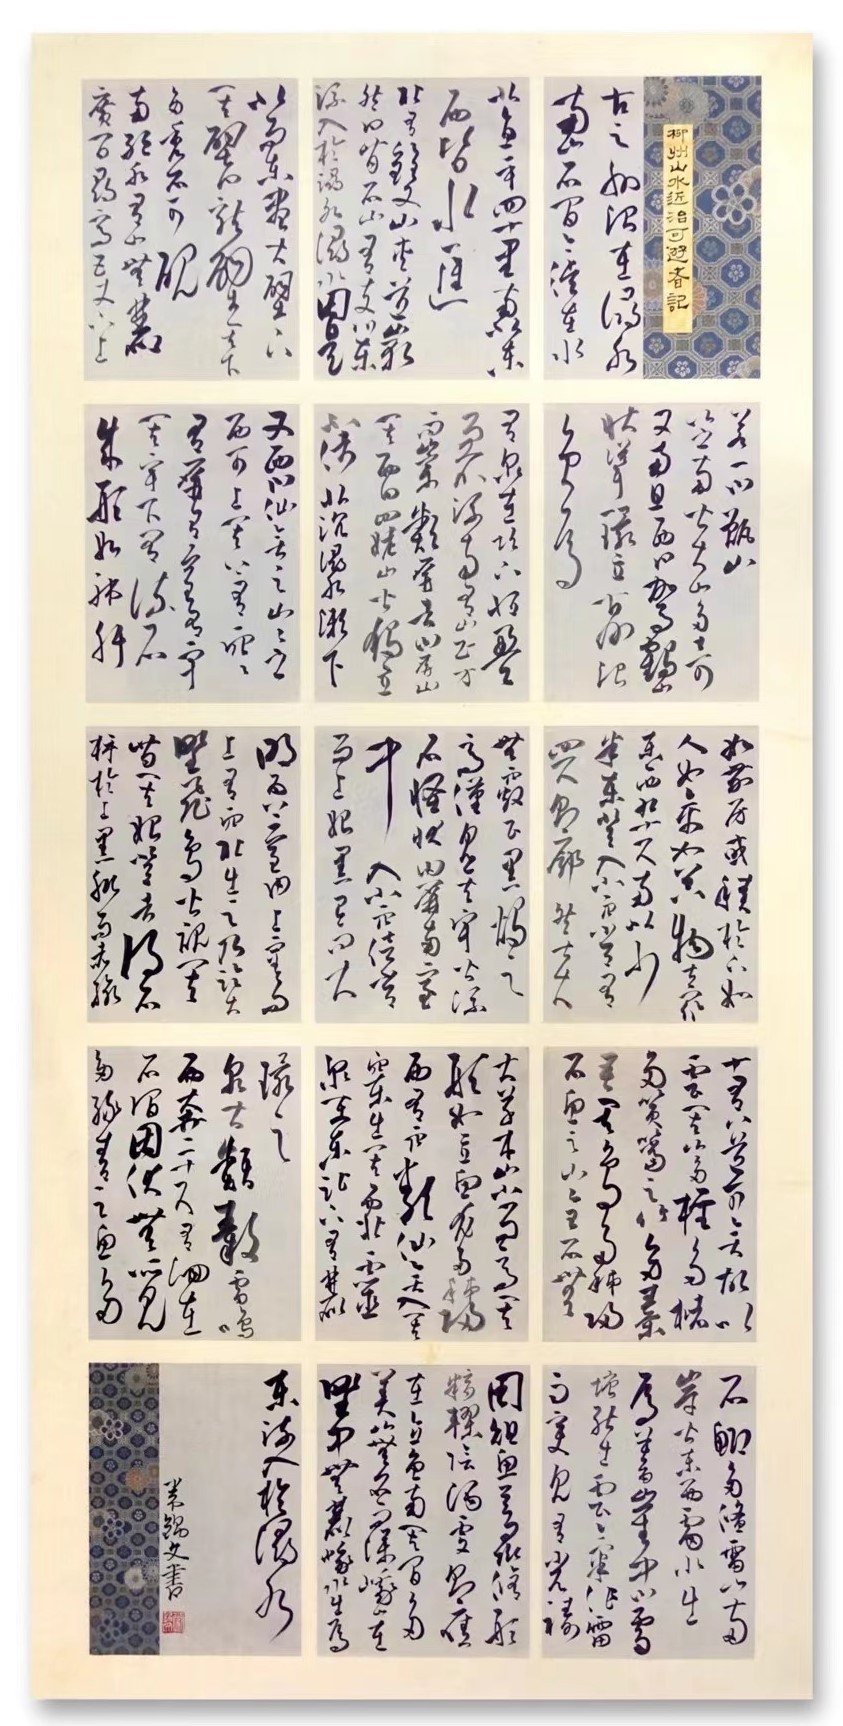 柳州山水近治可遊者記
古之州治在潯水
南山石間今徙在水
北直平四十里南北東
西皆水匯
北有雙山夾道嶄
然曰背石山有支川東
流入於潯水潯水因是
北而東盡大壁下
其壁曰龍壁其下
多秀石可硯
南絕水有山無麓
廣百尋高五丈下上
若一曰甑山
山之南皆大山多奇
又南且西曰駕鶴山
壯聳環立古州治
負焉
有泉在坎下恆盈
而不流南有山正方
而崇類屏者曰屏山
其西曰四姥山皆獨立
不倚北沉潯水瀨下
又西曰仙弈之山山之
西可上其上有穴穴
有屏有室有宇
其宇下有流石
成形如肺肝
如茄房或積於下如
人如禽如器物甚眾
東西九十尺南北少
半東登入小穴常有
四尺則廓然甚大
無竅正黑燭之
高僅見其宇皆流
石怪狀由屏南室
中入小穴倍常
而上始黑已而大
明為上室由上室而
上有穴北出之乃臨大
野飛鳥皆視其
背其始登者得石
枰於上黑肌而赤脈
十有八道可弈故以
云其山多檉多櫧
多篔簹之竹多橐
吾其鳥多秭歸
石魚之山全石無
大草木山小而高其
形如立魚尤多秭歸
西有穴類仙弈入其
穴東出其西北靈
泉在東趾下有麓
環之
泉大類轂雷鳴
西奔二十尺有洄在
石澗因伏無所見
多綠青之魚多
石鯽多鯈雷山兩
崖皆東西雷水出
焉蓄崖中曰雷
塘能出雲氣作雷
雨變見有光禱
用俎魚豆彘修形
糈稌陰酒虔則應
在立魚南其間多
美山無名而深峨山在
野中無麓峨水出焉
東流入於潯水
朱錦文書